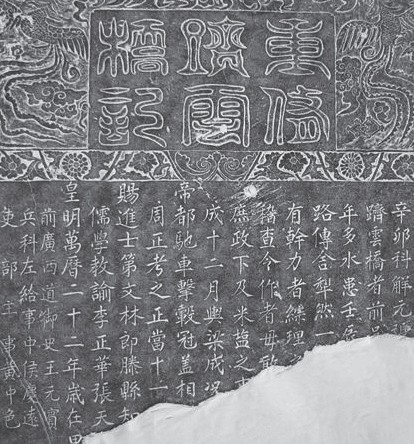 重修
躋雲
橋記
辛卯科解元
躋雲橋者前
年多水患壬
路傳舍犁然一
有幹力者綜理
籍查令作者毋敢
庶政下及米鹽之
成十二月輿梁成
帝都馳車擊轂冠蓋相
周正考之正當十一
賜進士第文林郎滕縣知
儒學教諭李正華張天
皇明萬曆二十二年歲在甲
前廣西道御史王元賓
兵科左給事中侯慶遠
吏部主事黃中色